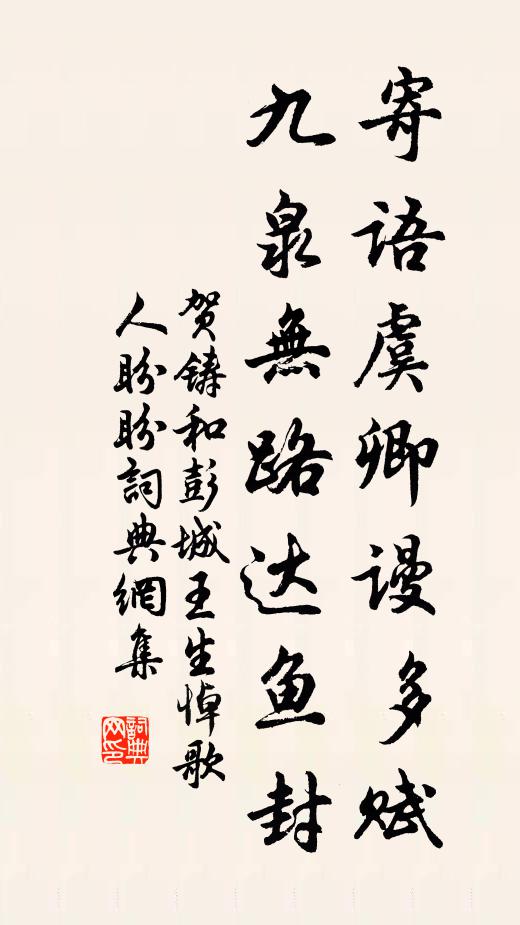 寄語虞卿谩多赋
九泉無路达鱼封
贺鑄和彭城王生悼歌
人盼盼詞典網集
詞典网印